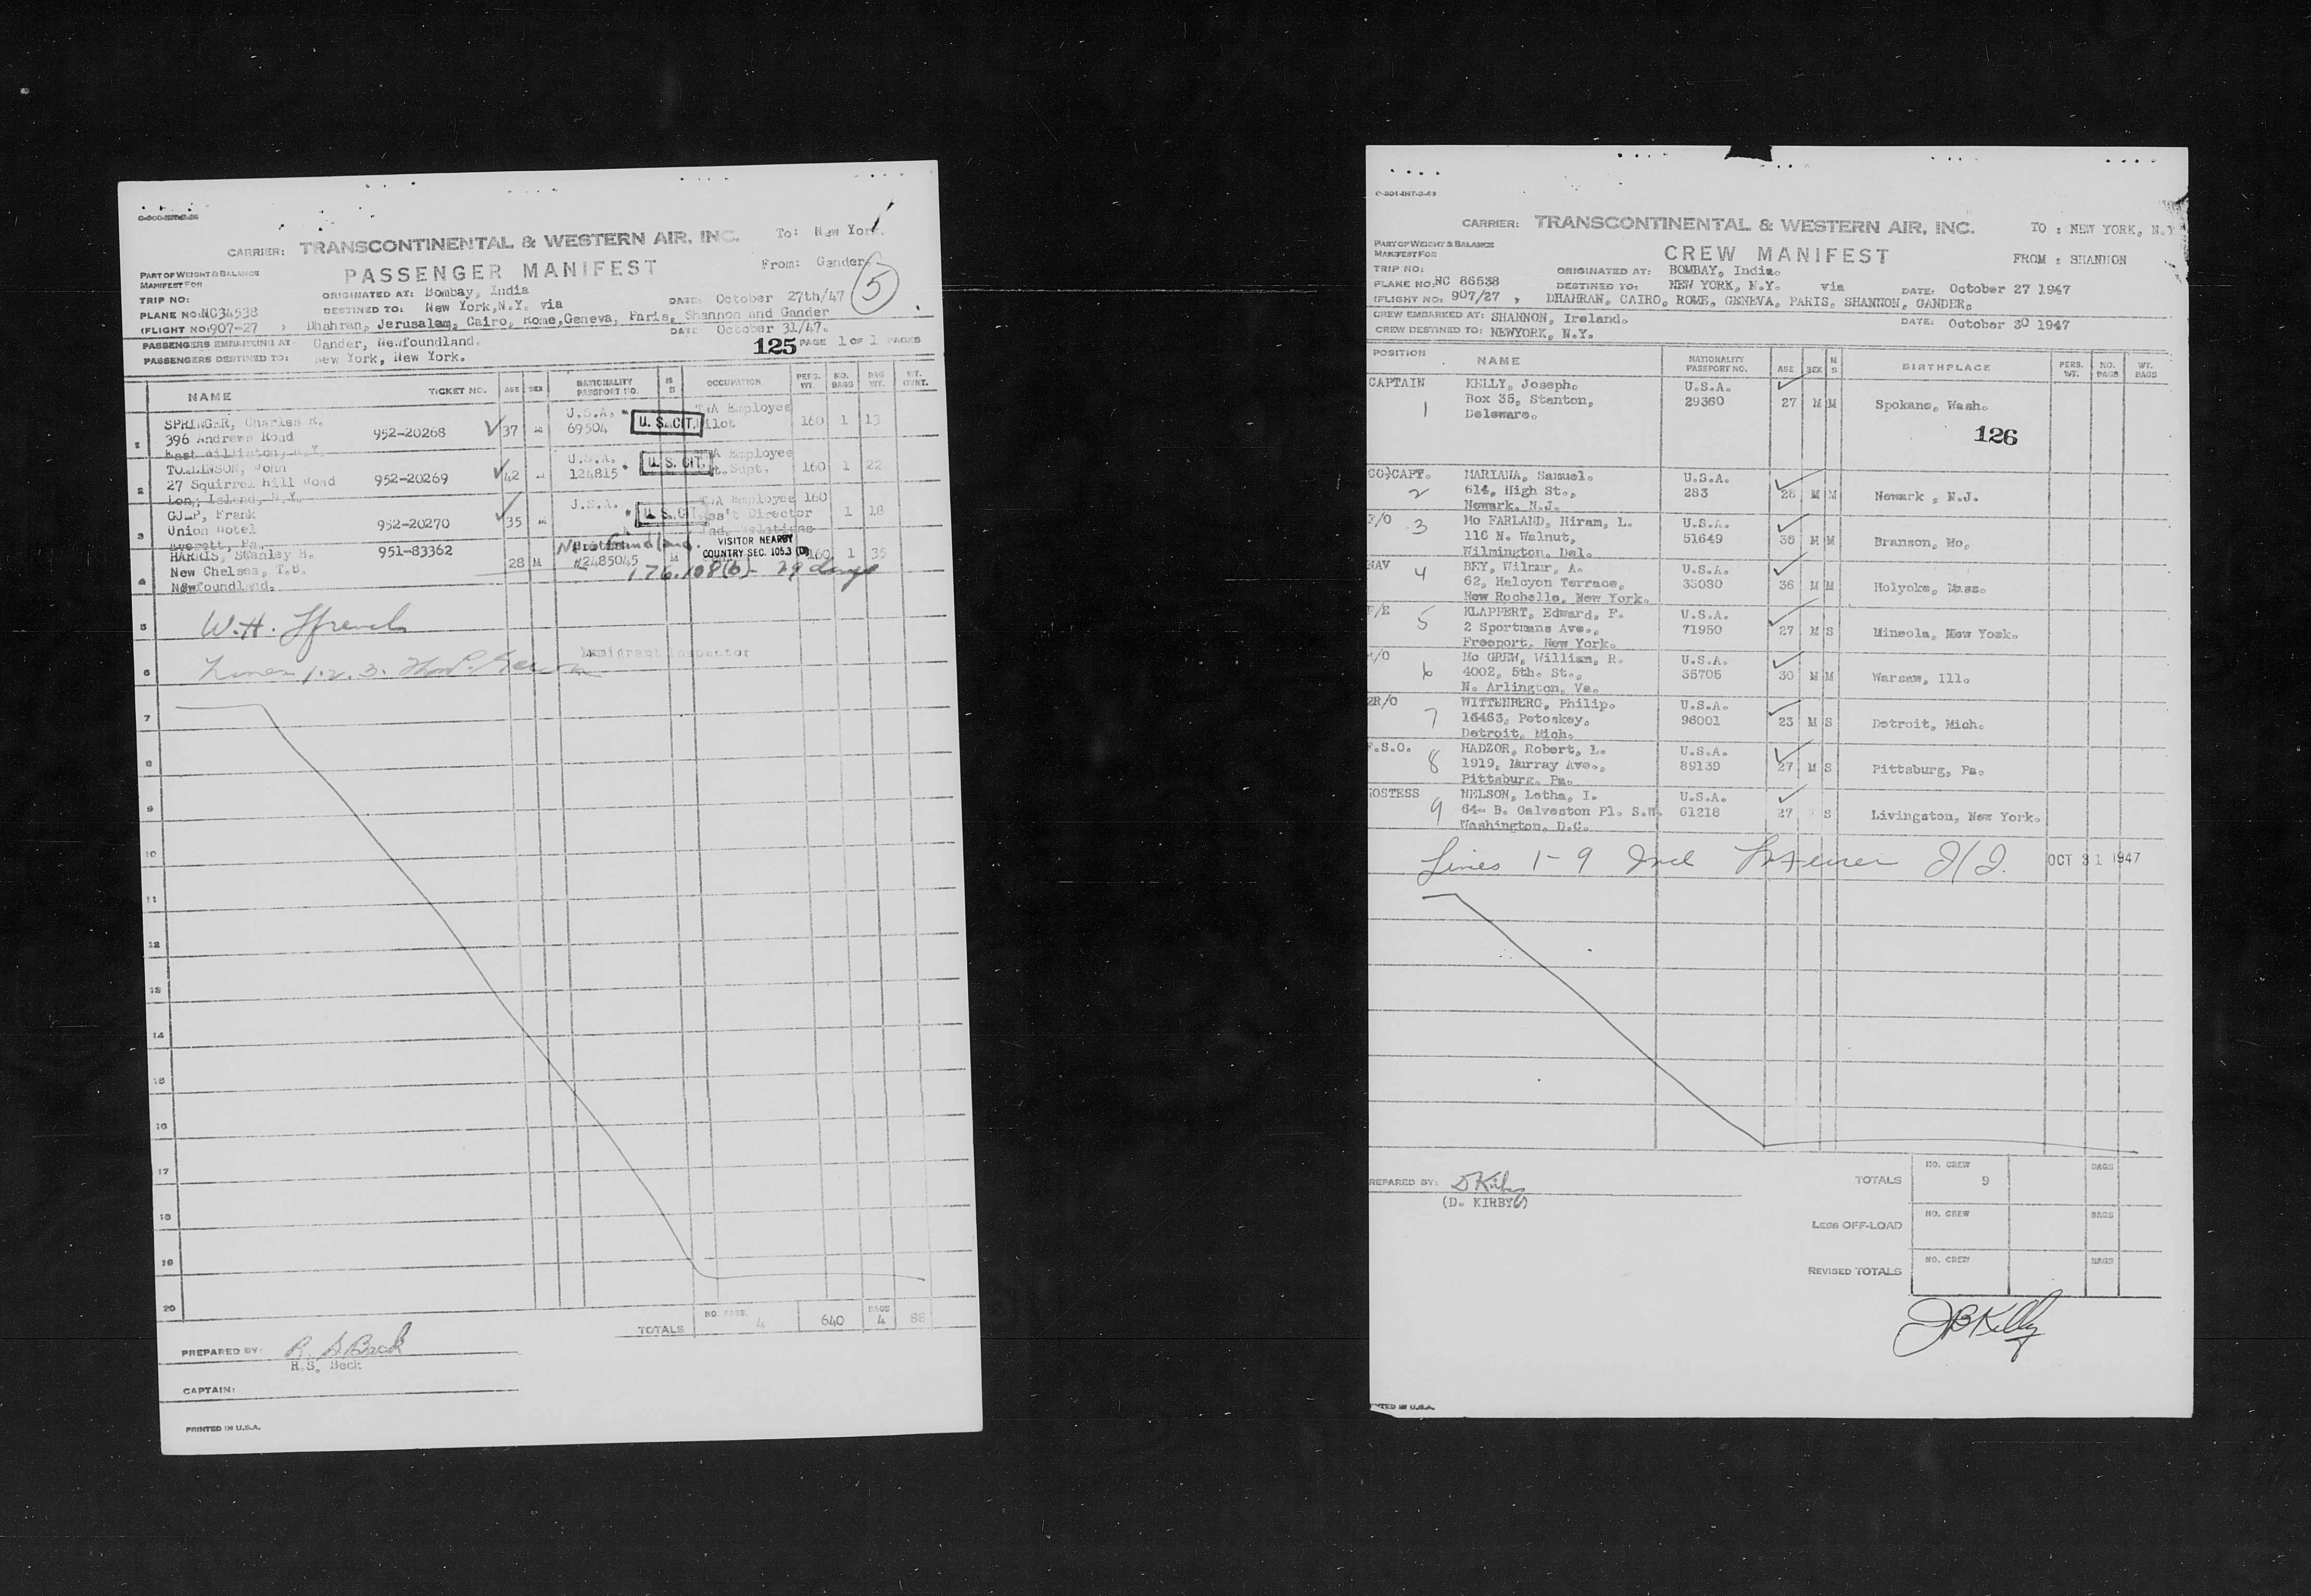 CARRIER: TRANSCONTINENTAL & WESTERN AIR, INC. To: New York.
PASSENGER MANIFEST From: Gander
5
PART OF WEIGHT & BALANCE
MANIFEST FOR
TRIP NO: ORIGINATED AT: Bombay, India DATE: October 27th/47
PLANE NO: NC34538 DESTINED TO: New York, N.Y. via
(FLIGHT NO: 907-27 , Dhahran, Jerusalem, Cairo, Rome, Geneva, Paris, Shannon and Gander
DATE: October 31/47.
PASSENGERS EMBARKING AT: Gander, Newfoundland. 125 PAGE 1 OF 1 PAGES
PASSENGERS DESTINED TO: New York, New York.
NAME TICKET NO. AGE SEX NATIONALITY PASSPORT NO. M S OCCUPATION PERS. WT. NO. BAGS BAG WT.
1 SPRINGER, Charles R. 952-20268 37 M U.S.A. 69504 U. S. CIT. TWA Employee Pilot 160 1 13
396 Andrews Road
East Williston, N.Y.
2 TOMLINSON, John 952-20269 42 M U.S.A. 124815 U. S. CIT. 160 1 22
27 Squirrel hill Road
Long Island, N.Y.
3 Frank 952-20270 35 M U.S.A. U. S. CIT. TWA Employee Ass't Director Ind. Relations 160 1 18
Union Hotel
Everett, Pa.
4 HARRIS, Stanley H. 951-83362 28 M Newfoundland. 2485045 M 160 1 35
New Chelsea, T.B.
Newfoundland.
VISITOR NEARBY
COUNTRY SEC. 105.3 (D)
176.108(b) - 29 days
5 W.H. Ffrench
Immigrant Inspector
6 Lines 1.2.3.
7
8
9
10
11
12
13
14
15
16
17
18
19
20
TOTALS NO. PASS. 4 640 BAGS 4 88
PREPARED BY: R. S. Beck
R.S. Beck
CAPTAIN:
PRINTED IN U.S.A.
CARRIER: TRANSCONTINENTAL & WESTERN AIR, INC. TO : NEW YORK, N.Y
CREW MANIFEST FROM : SHANNON
PART OF WEIGHT & BALANCE
MANIFEST FOR
TRIP NO: ORIGINATED AT: BOMBAY, India.
PLANE NO: NC 86538 DESTINED TO: NEW YORK, N.Y. via DATE: October 27 1947
(FLIGHT NO: 907/27 , DHAHRAN, CAIRO, ROME, GENEVA, PARIS, SHANNON, GANDER,
CREW EMBARKED AT: SHANNON, Ireland. DATE: October 30 1947
CREW DESTINED TO: NEWYORK, N.Y.
POSITION NAME NATIONALITY PASSPORT NO. AGE SEX M S BIRTHPLACE PERS. WT. NO. BAGS WT. BAGS
CAPTAIN 1 KELLY, Joseph. U.S.A. 29360 27 M M Spokane, Wash.
Box 35, Stanton,
Deleware.
126
CO/CAPT. 2 MARIANA, Samuel. U.S.A. 283 28 M M Newark , N.J.
614, High St.,
Newark. N.J.
F/O 3 Mc FARLAND, Hiram, L. U.S.A. 51649 36 M M Branson, Mo,
110 N. Walnut,
Wilmington, Del.
NAV 4 BEY, Wilmur, A. U.S.A. 33080 36 M M Holyoke, Mass.
62, Halcyon Terrace,
New Rochelle, New York.
F/E 5 KLAPPERT, Edward, F. U.S.A. 71950 27 M S Mineola, New York.
2 Sportmans Ave.,
Freeport, New York.
R/O 6 Mc GREW, William, R. U.S.A. 35705 30 M M Warsaw, Ill.
4002, 5th. St.,
N. Arlington, Va.
2R/O 7 WITTENBERG, Philip. U.S.A. 96001 23 M S Detroit, Mich.
15463, Petoskey,
Detroit, Mich.
F.S.O. 8 HADZOR, Robert, L. U.S.A. 89139 27 M S Pittsburg, Pa.
1919, Murray Ave.,
Pittsburg, Pa.
HOSTESS 9 NELSON, Letha, I. U.S.A. 61218 27 F S Livingston, New York.
64- B. Galveston Pl. S.W.
Washington, D.C.
Lines 1-9 Incl OCT 31 1947
PREPARED BY: D Kirby
(D. KIRBY)
TOTALS NO. CREW 9 BAGS
LESS OFF-LOAD NO. CREW BAGS
REVISED TOTALS NO. CREW BAGS
JB Kelly
PRINTED IN U.S.A.